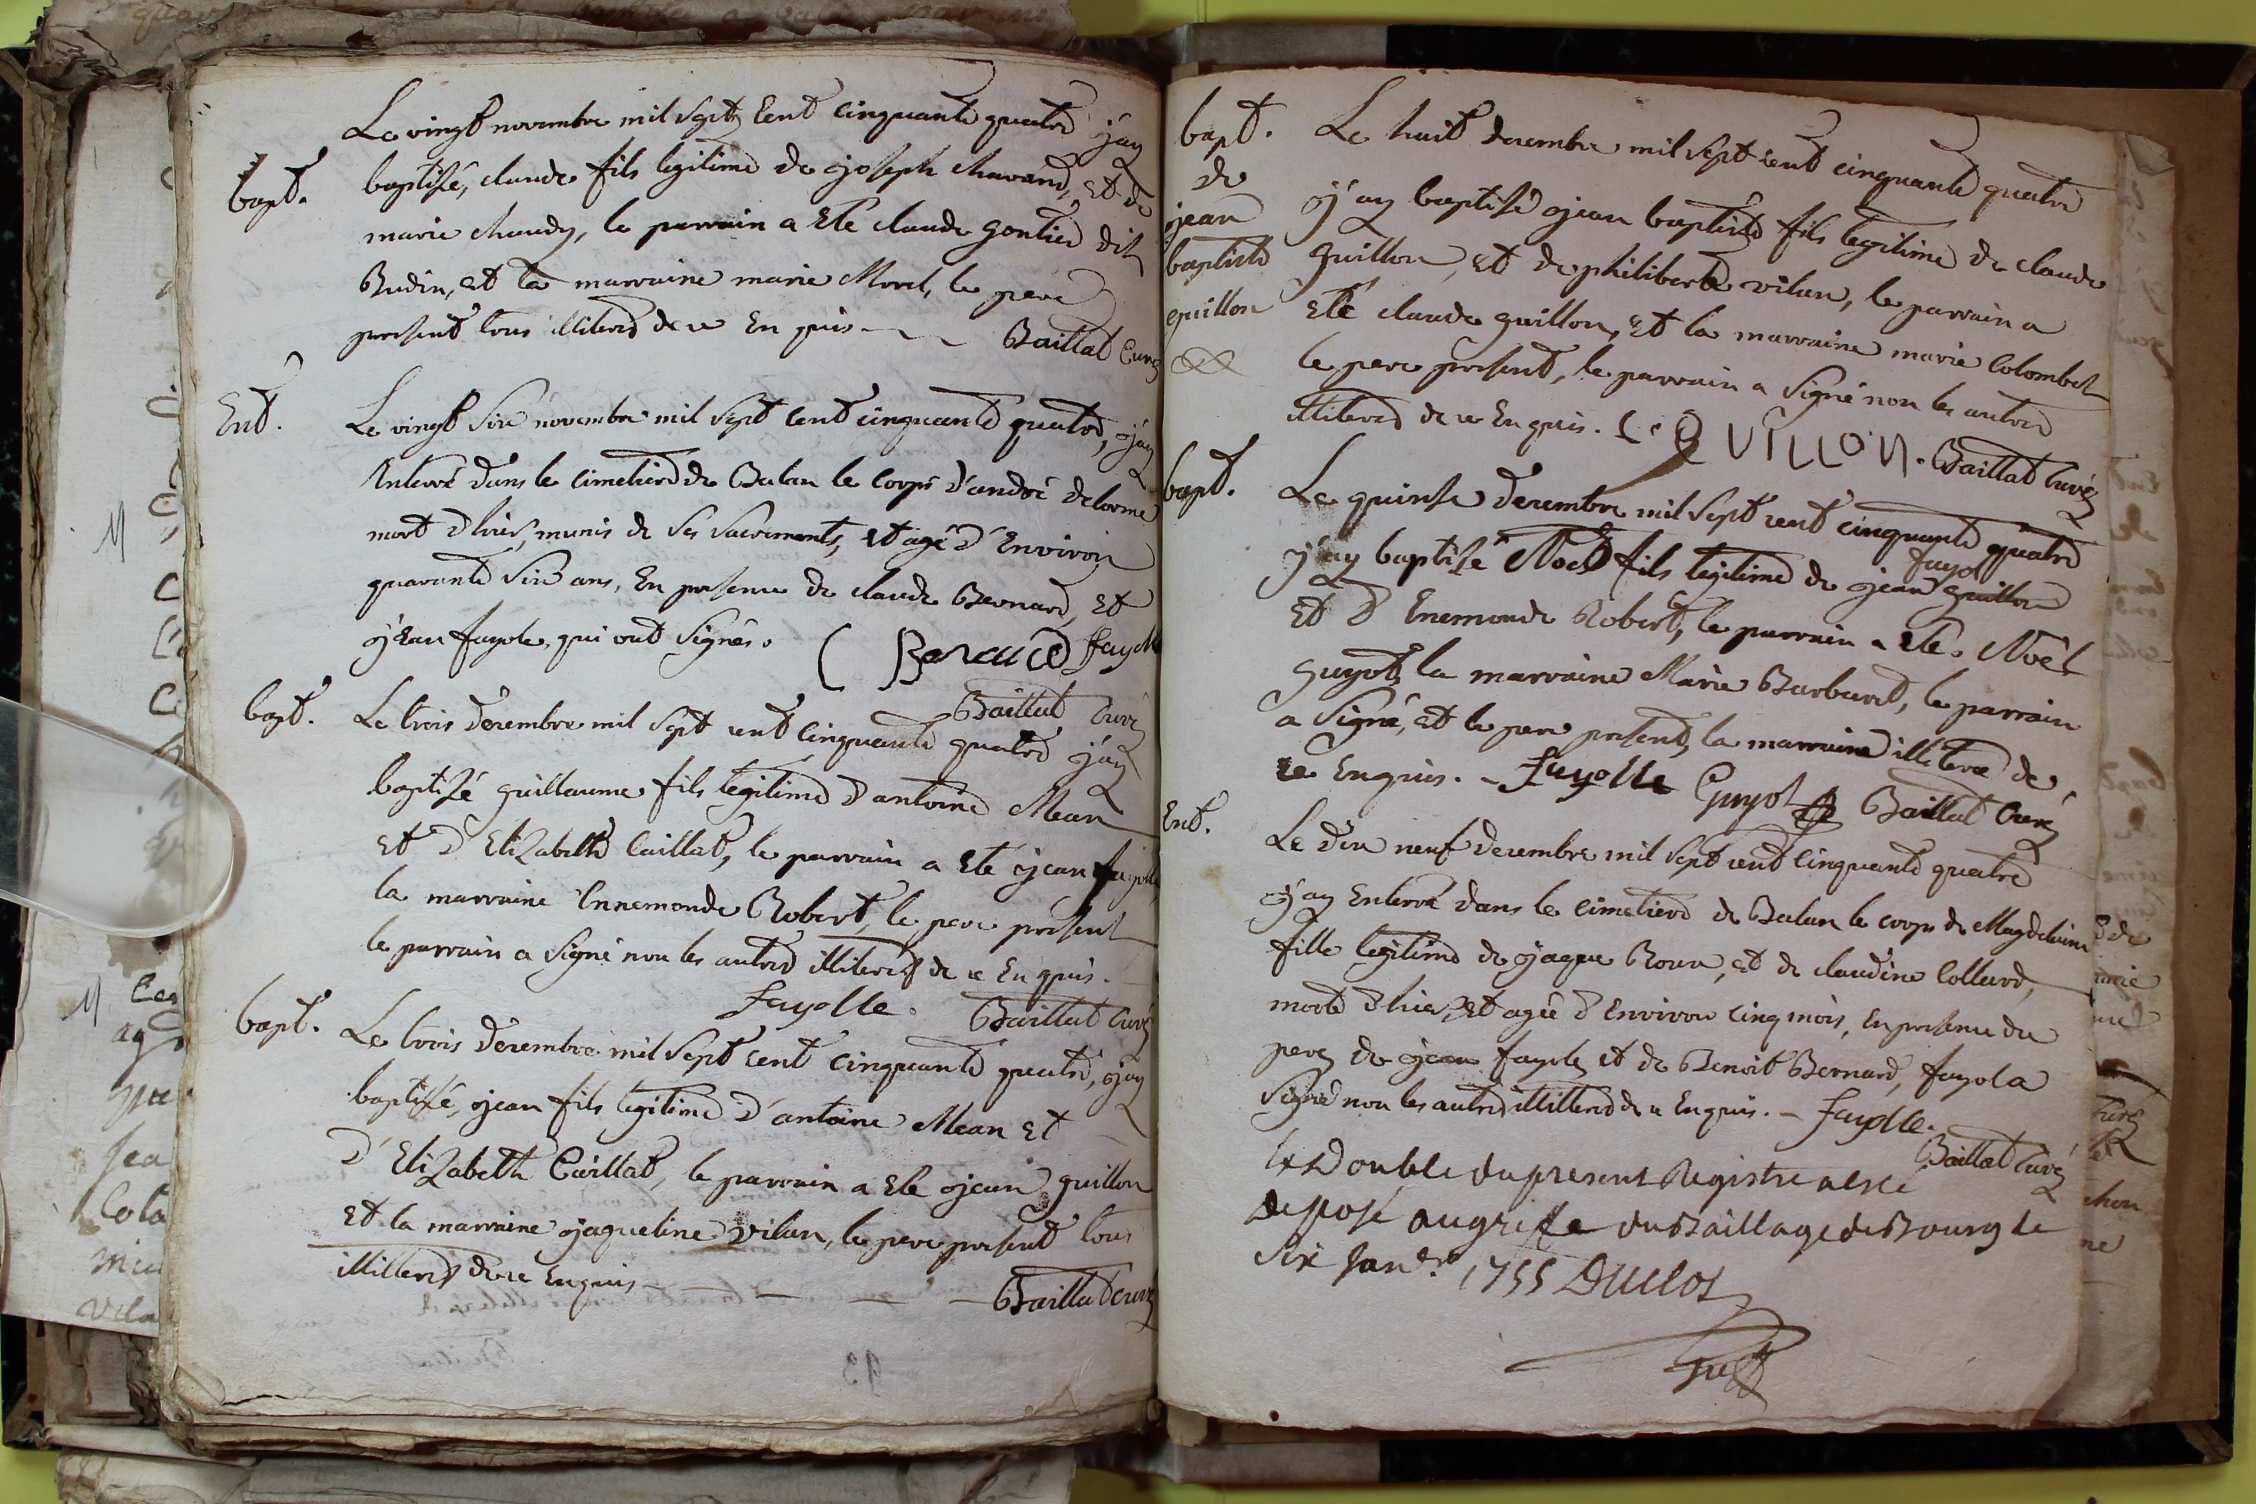 Le vingt novembre mil sept Cent Cinquante quatre j'ay
bapt.
baptisé, claude fils legitime de joseph chavand, et de
marie chaudy, le parrain a Eté claude gontier dit
Budin, et la marraine marie Morel, le pere
present tous illiterés de ce En quis
Baillat Curé
Ent.
Le vingt six novembre mil sept cent cinquante quatre, j'ay
Enterré dans le cimetiere de Balan le corps d'andré delorme
mort d'hier, munis de ses sacrements, et agé d'Environ
quarante Six ans, En presence de claude Bernard, Et
jean fayole, qui ont signés.
Bernard fayolle
Baillat Curé
bapt.
Le trois decembre mil sept cent Cinquante quatre j'ay
baptisé guillaume fils legitime d'antoine Mean
Et d'Elizabeth Caillat, le parrain a Eté jean fayolle
la marraine Ennemonde Robert, le pere present
le parrain a signé non les autres illiterés de ce En quis.
fayolle. Baillat Curé
bapt.
Le trois decembre mil sept cent cinquante quatre, j'ay
baptisé, jean fils legitime d'antoine Mean Et
d'Elizabeth Caillat, le parrain a Ete jean guillon
Et la marraine jaqueline vilan, le pere present tous
illiterés de ce Enquis
Baillat curé
93
bapt.
de
jean
baptiste
guillon
Le huit decembre mil sept cent cinquante quatre
j'ay baptisé jean baptiste fils legitime de claude
guillon, et de philiberte vilan, le parrain a
Eté claude guillon, Et la marraine marie Colombet
le pere present, le parrain a signé non les autres
illiterés de ce Enquis. C. QUILLON. Baillat Curé
bapt.
Le quinse decembre mil sept cent cinquante quatre
fayol
j'ay baptisé Noel fils legitime de jean guillon
Et d'Enemonde Robert, le parrain a Eté Noël
guyot, la marraine Marie Barbaret, le parrain
a signé, et le pere present, la marraine illiterée de
ce Enquis. - fayolle Guyot Baillat Curé
Ent.
Le dix neuf decembre mil sept cent Cinquante quatre
j'ay Enterré dans le cimetiere de Balan le corps de Magdelaine
fille legitime de jaque Roux, et de claudine Collard,
morte d'hier, et agée d'Environ cinq mois, En presence du
pere de jean fayole et de Benoit Bernard, fayol a
signé non les autres illiterés de ce Enquis. - fayolle.
Baillat Curé
Le Double du present Registre a esté
deposé au greffe du Baillage de Bourg le
six Janer. 1755 Duclos